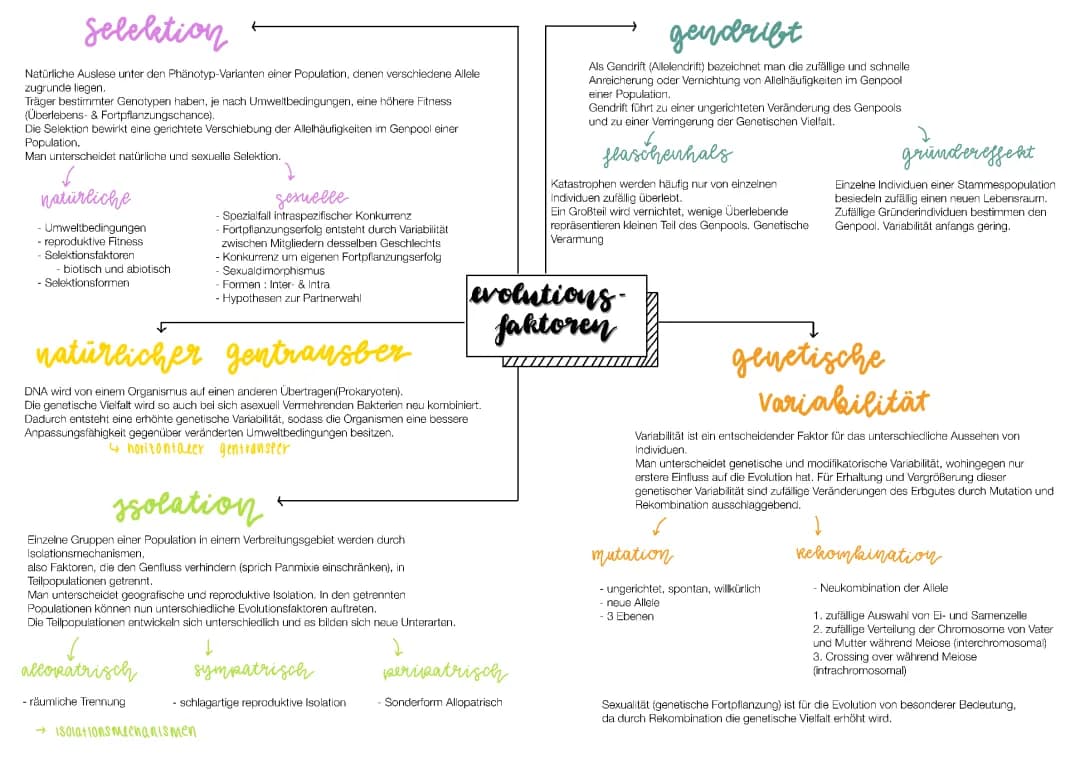 selektion
Natürliche Auslese unter den Phänotyp-Varianten einer Population, denen verschiedene Allele
zugrunde liegen.
Träger bestimmter Genotypen haben, je nach Umweltbedingungen, eine höhere Fitness
(Überlebens- & Fortpflanzungschance).
Die Selektion bewirkt eine gerichtete Verschiebung der Allelhäufigkeiten im Genpool einer
Population.
Man unterscheidet natürliche und sexuelle Selektion.
natürliche
- Umweltbedingungen
- reproduktive Fitness
- Selektionsfaktoren
- biotisch und abiotisch
- Selektionsformen
sexuelle
- Spezialfall intraspezifischer Konkurrenz
- Fortpflanzungserfolg entsteht durch Variabilität
zwischen Mitgliedern desselben Geschlechts
- Konkurrenz um eigenen Fortpflanzungserfolg
- Sexualdimorphismus
- Formen : Inter- & Intra
- Hypothesen zur Partnerwahl
gendrift
Als Gendrift (Allelendrift) bezeichnet man die zufällige und schnelle
Anreicherung oder Vernichtung von Allelhäufigkeiten im Genpool
einer Population.
Gendrift führt zu einer ungerichteten Veränderung des Genpools
und zu einer Verringerung der Genetischen Vielfalt.
flaschenhals
Katastrophen werden häufig nur von einzelnen
Individuen zufällig überlebt.
Ein Großteil wird vernichtet, wenige Überlebende
repräsentieren kleinen Teil des Genpools. Genetische
Verarmung
gründereffekt
Einzelne Individuen einer Stammespopulation
besiedeln zufällig einen neuen Lebensraum.
Zufällige Gründerindividuen bestimmen den
Genpool. Variabilität anfangs gering.
evolutions-
faktoren
natürlicher gentransfer
DNA wird von einem Organismus auf einen anderen Übertragen(Prokaryoten).
Die genetische Vielfalt wird so auch bei sich asexuell Vermehrenden Bakterien neu kombiniert.
Dadurch entsteht eine erhöhte genetische Variabilität, sodass die Organismen eine bessere
Anpassungsfähigkeit gegenüber veränderten Umweltbedingungen besitzen.
↳ horizontaler gentransfer
genetische
Variabilität
Variabilität ist ein entscheidender Faktor für das unterschiedliche Aussehen von
Individuen.
Man unterscheidet genetische und modifikatorische Variabilität, wohingegen nur
erstere Einfluss auf die Evolution hat. Für Erhaltung und Vergrößerung dieser
genetischer Variabilität sind zufällige Veränderungen des Erbgutes durch Mutation und
Rekombination ausschlaggebend.
mutation
- ungerichtet, spontan, willkürlich
- neue Allele
- 3 Ebenen
Rekombination
- Neukombination der Allele
1. zufällige Auswahl von Ei- und Samenzelle
2. zufällige Verteilung der Chromosome von Vater
und Mutter während Meiose (interchromosomal)
3. Crossing over während Meiose
(intrachromosomal)
Sexualität (genetische Fortpflanzung) ist für die Evolution von besonderer Bedeutung,
da durch Rekombination die genetische Vielfalt erhöht wird.
isolation
Einzelne Gruppen einer Population in einem Verbreitungsgebiet werden durch
Isolationsmechanismen,
also Faktoren, die den Genfluss verhindern (sprich Panmixie einschränken), in
Teilpopulationen getrennt.
Man unterscheidet geografische und reproduktive Isolation. In den getrennten
Populationen können nun unterschiedliche Evolutionsfaktoren auftreten.
Die Teilpopulationen entwickeln sich unterschiedlich und es bilden sich neue Unterarten.
allopatrisch
- räumliche Trennung
sympatrisch
- schlagartige reproduktive Isolation
peripatrisch
- Sonderform Allopatrisch
→ isolationsmechanismen